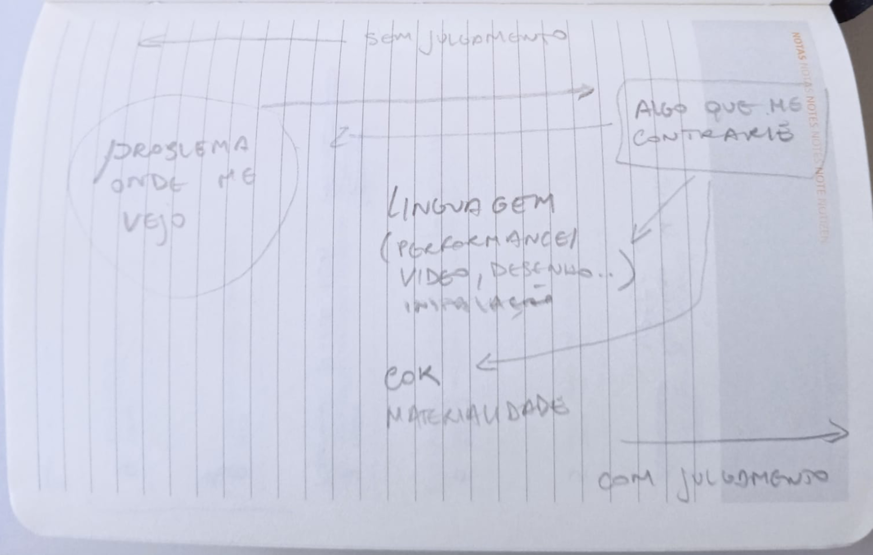 SEM JULGAMENTO
PROBLEMA
ONDE ME
VEJO
ALGO QUE ME
CONTRARIE
LINGUAGEM
(PERFORMANCE/
VIDEO, DESENHO...)
INSTALAÇÃO
COR
MATERIALIDADE
COM JULGAMENTO
NOTAS NOTAS NOTES NOTES